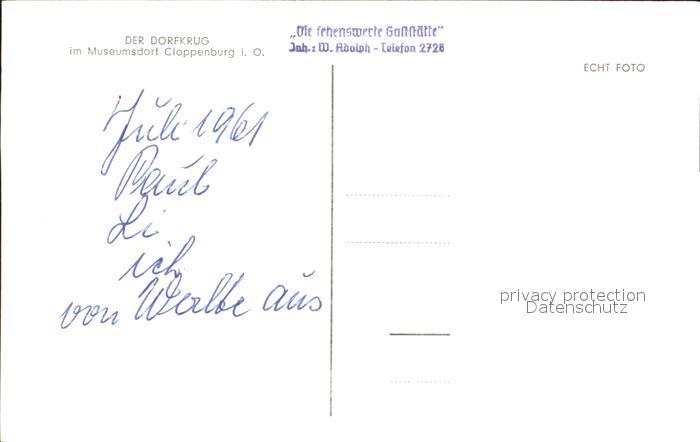 DER DORFKRUG
im Museumsdorf Cloppenburg i. O.
„Die sehenswerte Gaststätte"
Inh.: W. Adolph - Telefon 2726
ECHT FOTO
Juli 1961
Paul
Li
ich
von Werlte aus
privacy protection
Datenschutz